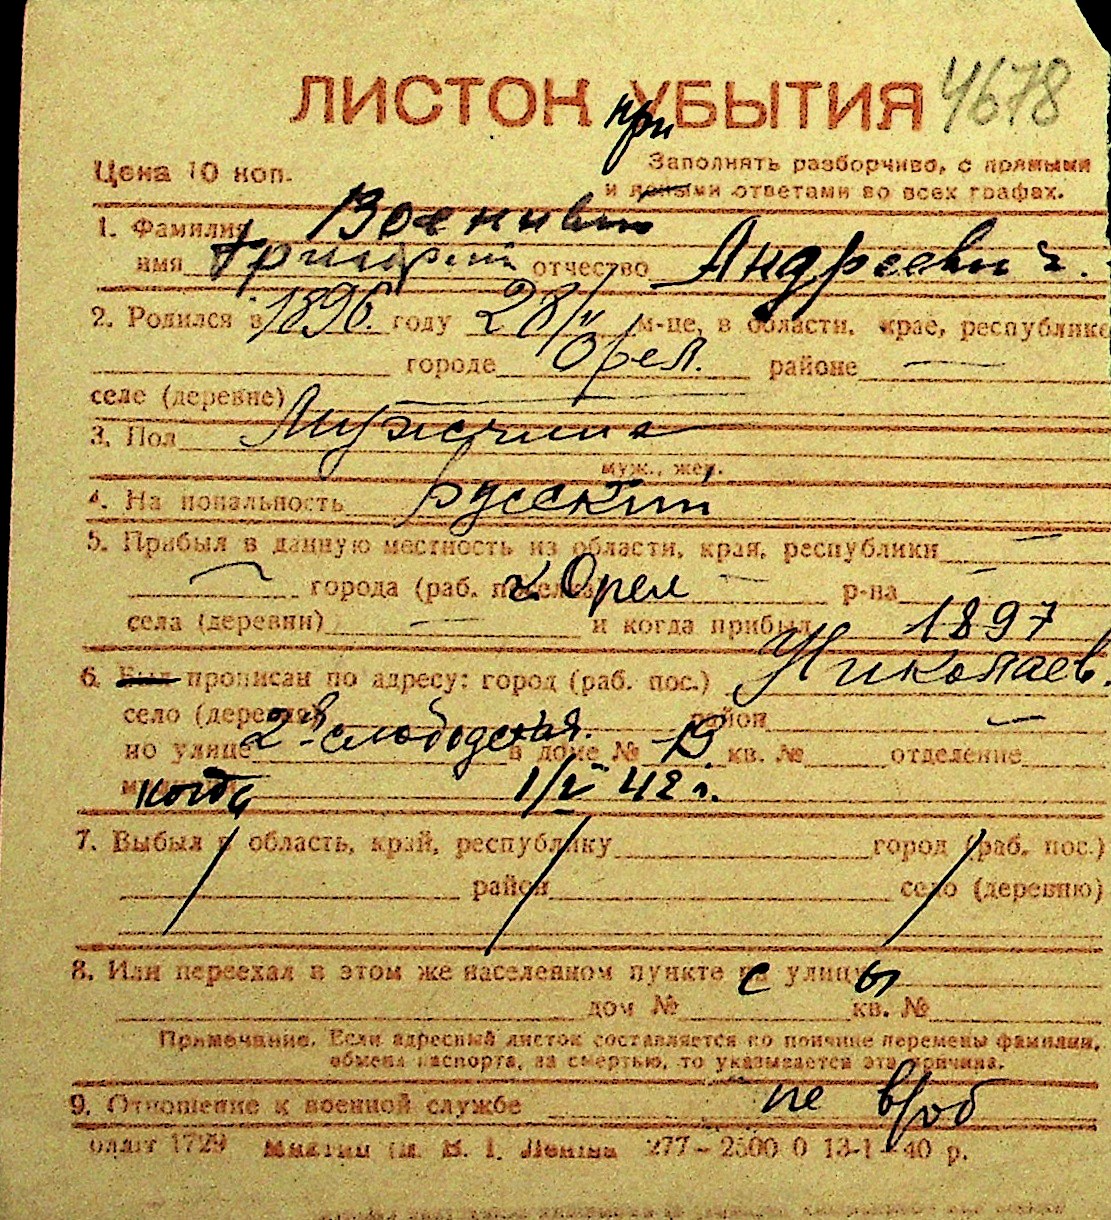 ЛИСТОК УБЫТИЯ 4678
при
Цена 10 коп. Заполнять разборчиво, с прямыми
и ясными ответами во всех графах.
1. Фамилия
имя Григорий отчество Андреевич.
2. Родился в 1896. году 28/II м-це, в области, крае, республике
городе Орел. районе —
селе (деревне) —
3. Пол Мужчина
муж., жен.
4. Национальность Русский
5. Прибыл в данную местность из области, края, республики —
— города (раб. поселка) г Орел — р-на —
села (деревни) — и когда прибыл 1897
6. Был прописан по адресу: город (раб. пос.) Николаев.
село (деревня) район —
по улице 2ая слободская. в доме № кв. № отделение
когда 1/V 42 г.
7. Выбыл в область, край, республику город (раб. пос.)
район село (деревню)
8. Или переехал в этом же населенном пункте с улицы
дом № кв. №
Примечание. Если адресный листок составляется по причине перемены фамилии,
обмена паспорта, за смертью, то указывается эта причина.
9. Отношение к военной службе не в/об
1729 В. И. Ленина 277—2500 0 13-1-40 р.